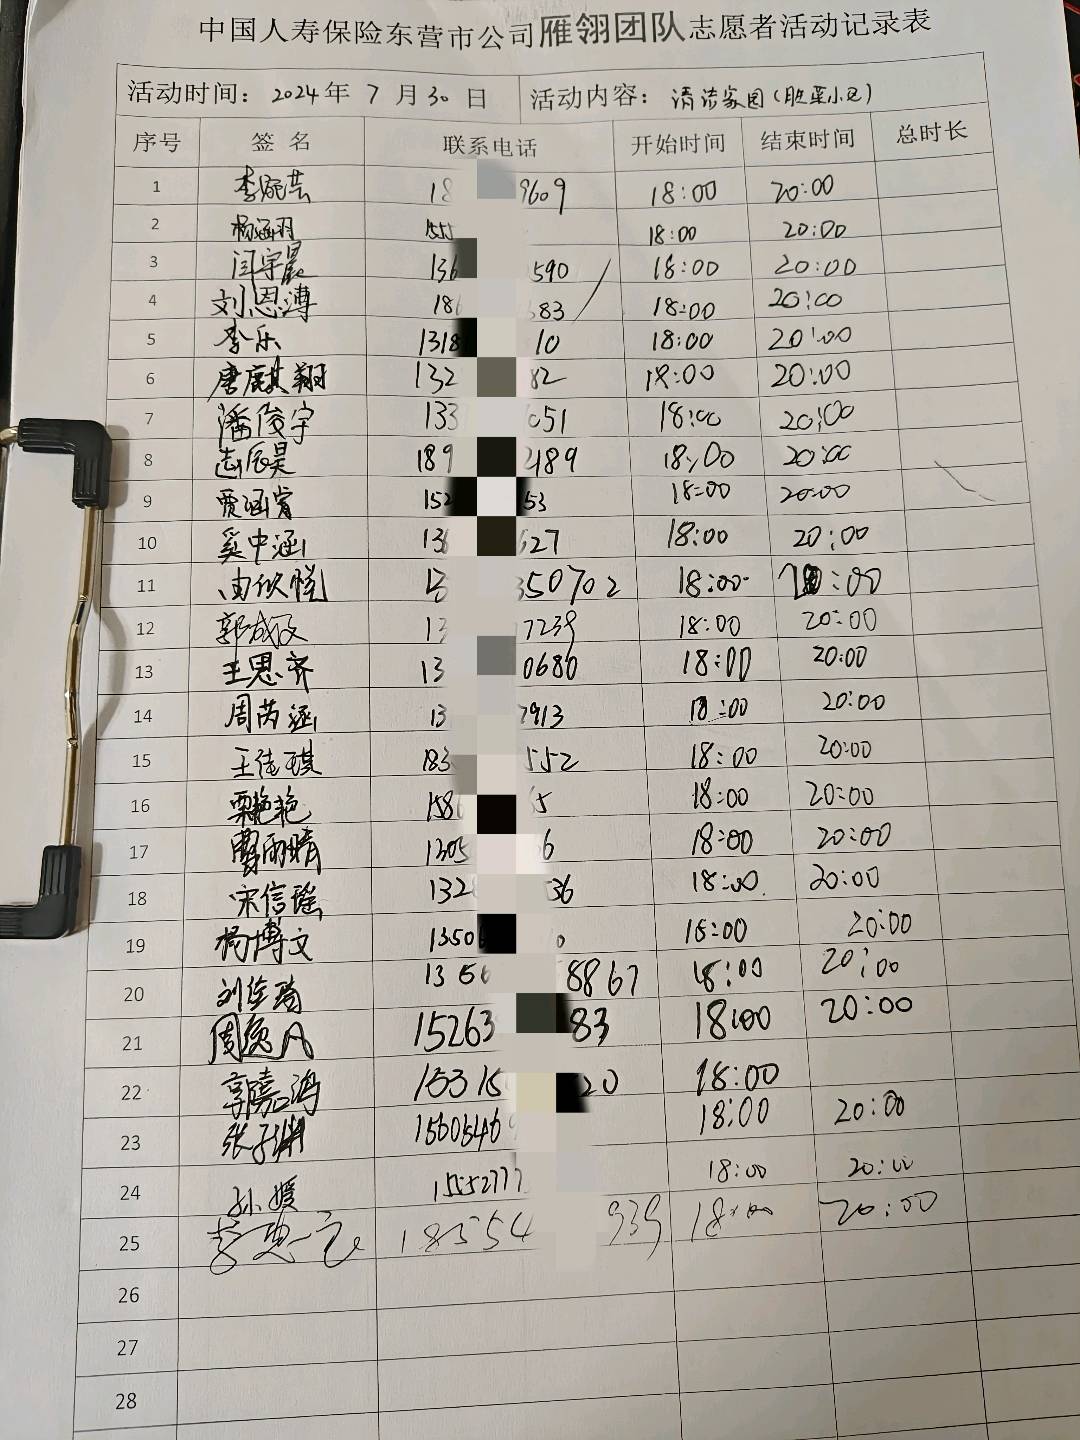 中国人寿保险东营市公司雁翎团队志愿者活动记录表
活动时间：2024年7月30日 活动内容：清洁家园（胜园小区）
序号 签名 联系电话 开始时间 结束时间 总时长
1 18 9609 18:00 20:00
2 杨涵羽 155 18:00 20:00
3 闫宇晨 136 590 18:00 20:00
4 刘恩溥 18 583 18:00 20:00
5 李乐 1318 10 18:00 20:00
6 唐麒翔 132 82 18:00 20:00
7 潘俊宇 133 051 18:00 20:00
8 189 2489 18:00 20:00
9 贾涵宵 152 53 18:00 20:00
10 奚中涵 136 627 18:00 20:00
11 由欣悦 13 350702 18:00 :00
12 郭成 13 7239 18:00 20:00
13 王思齐 13 0680 18:00 20:00
14 周芮涵 13 7913 18:00 20:00
15 王佳琪 183 552 18:00 20:00
16 栗艳艳 158 65 18:00 20:00
17 曹雨晴 1305 56 18:00 20:00
18 宋信瑶 132 536 18:00 20:00
19 杨博文 1350 0 18:00 20:00
20 1356 8867 18:00 20:00
21 周逸凡 15263 83 18:00 20:00
22 郭嘉鸿 15315 20 18:00
23 张子渊 15605469 18:00 20:00
24 孙媛 15552777 18:00 20:00
25 18554 939 18:00 20:00
26
27
28